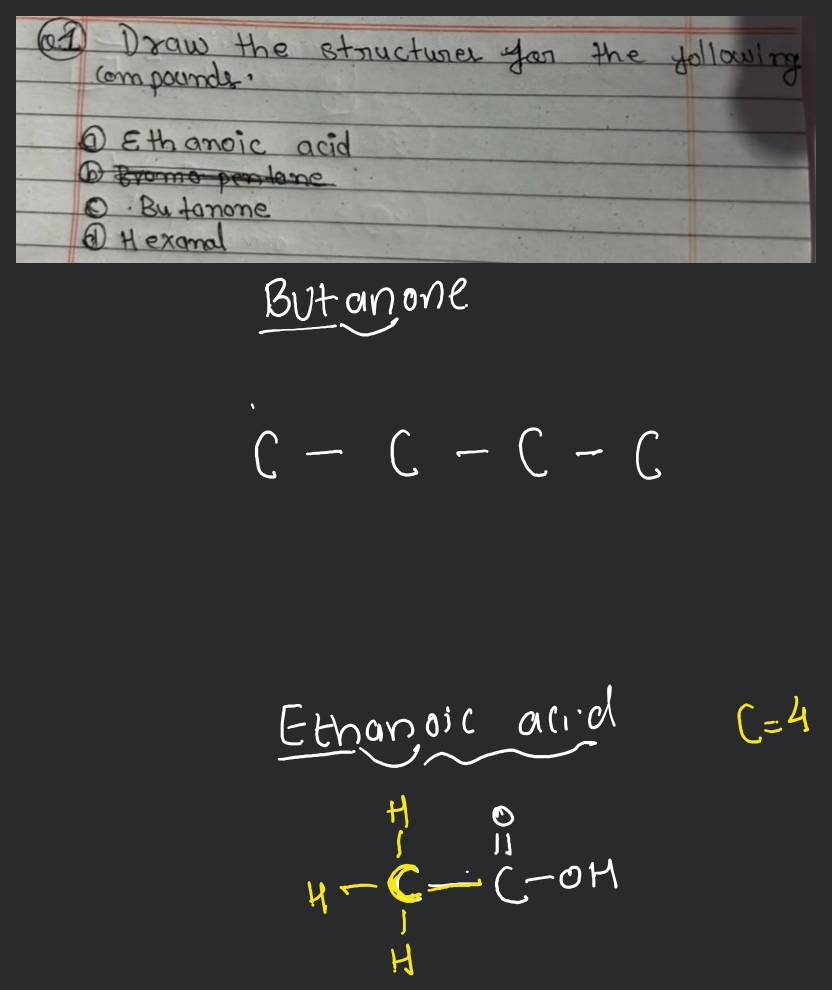 Q1 Draw the structures for the following
compounds.
a) Ethanoic acid
b) Bromo pentane
c) Butanone
d) Hexanal
Butanone
C - C - C - C
Ethanoic acid
C=4
H O
| ||
H - C - C - OH
|
H